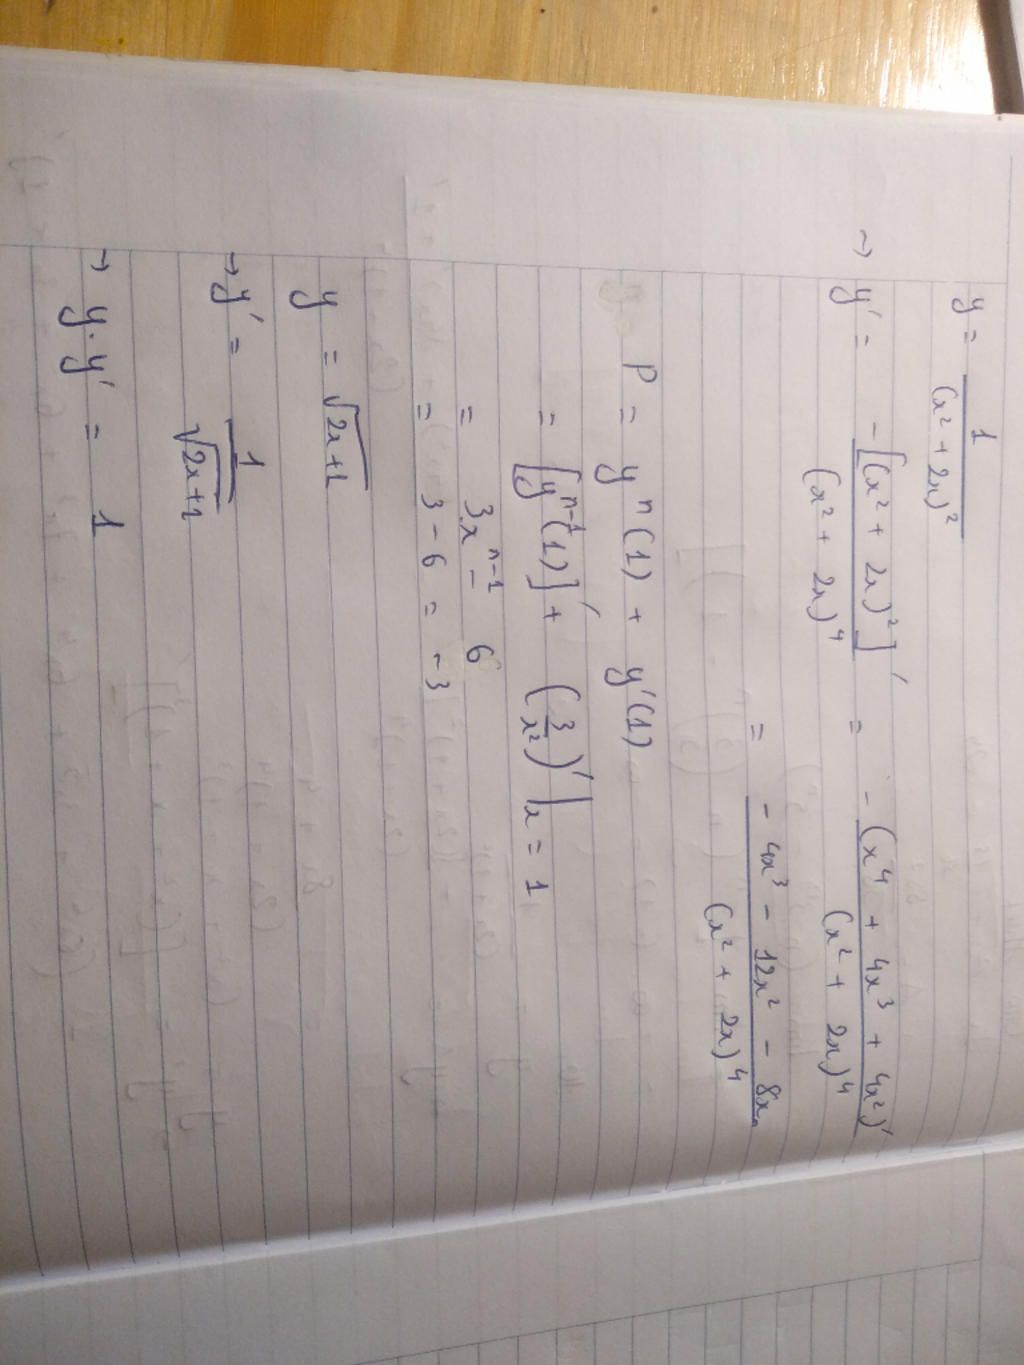 y = 1/(x² + 2x)²
→ y' = -[(x² + 2x)²]'/(x² + 2x)⁴ = -(x⁴ + 4x³ + 4x²)'/(x² + 2x)⁴
= (-4x³ - 12x² - 8x)/(x² + 2x)⁴
P = yⁿ(1) + y'(1)
= [yⁿ⁻¹(1)]' + (3/x²)' | x = 1
= 3xⁿ⁻¹ - 6
= 3 - 6 = -3
y = √(2x+1)
→ y' = 1/√(2x+1)
→ y.y' = 1